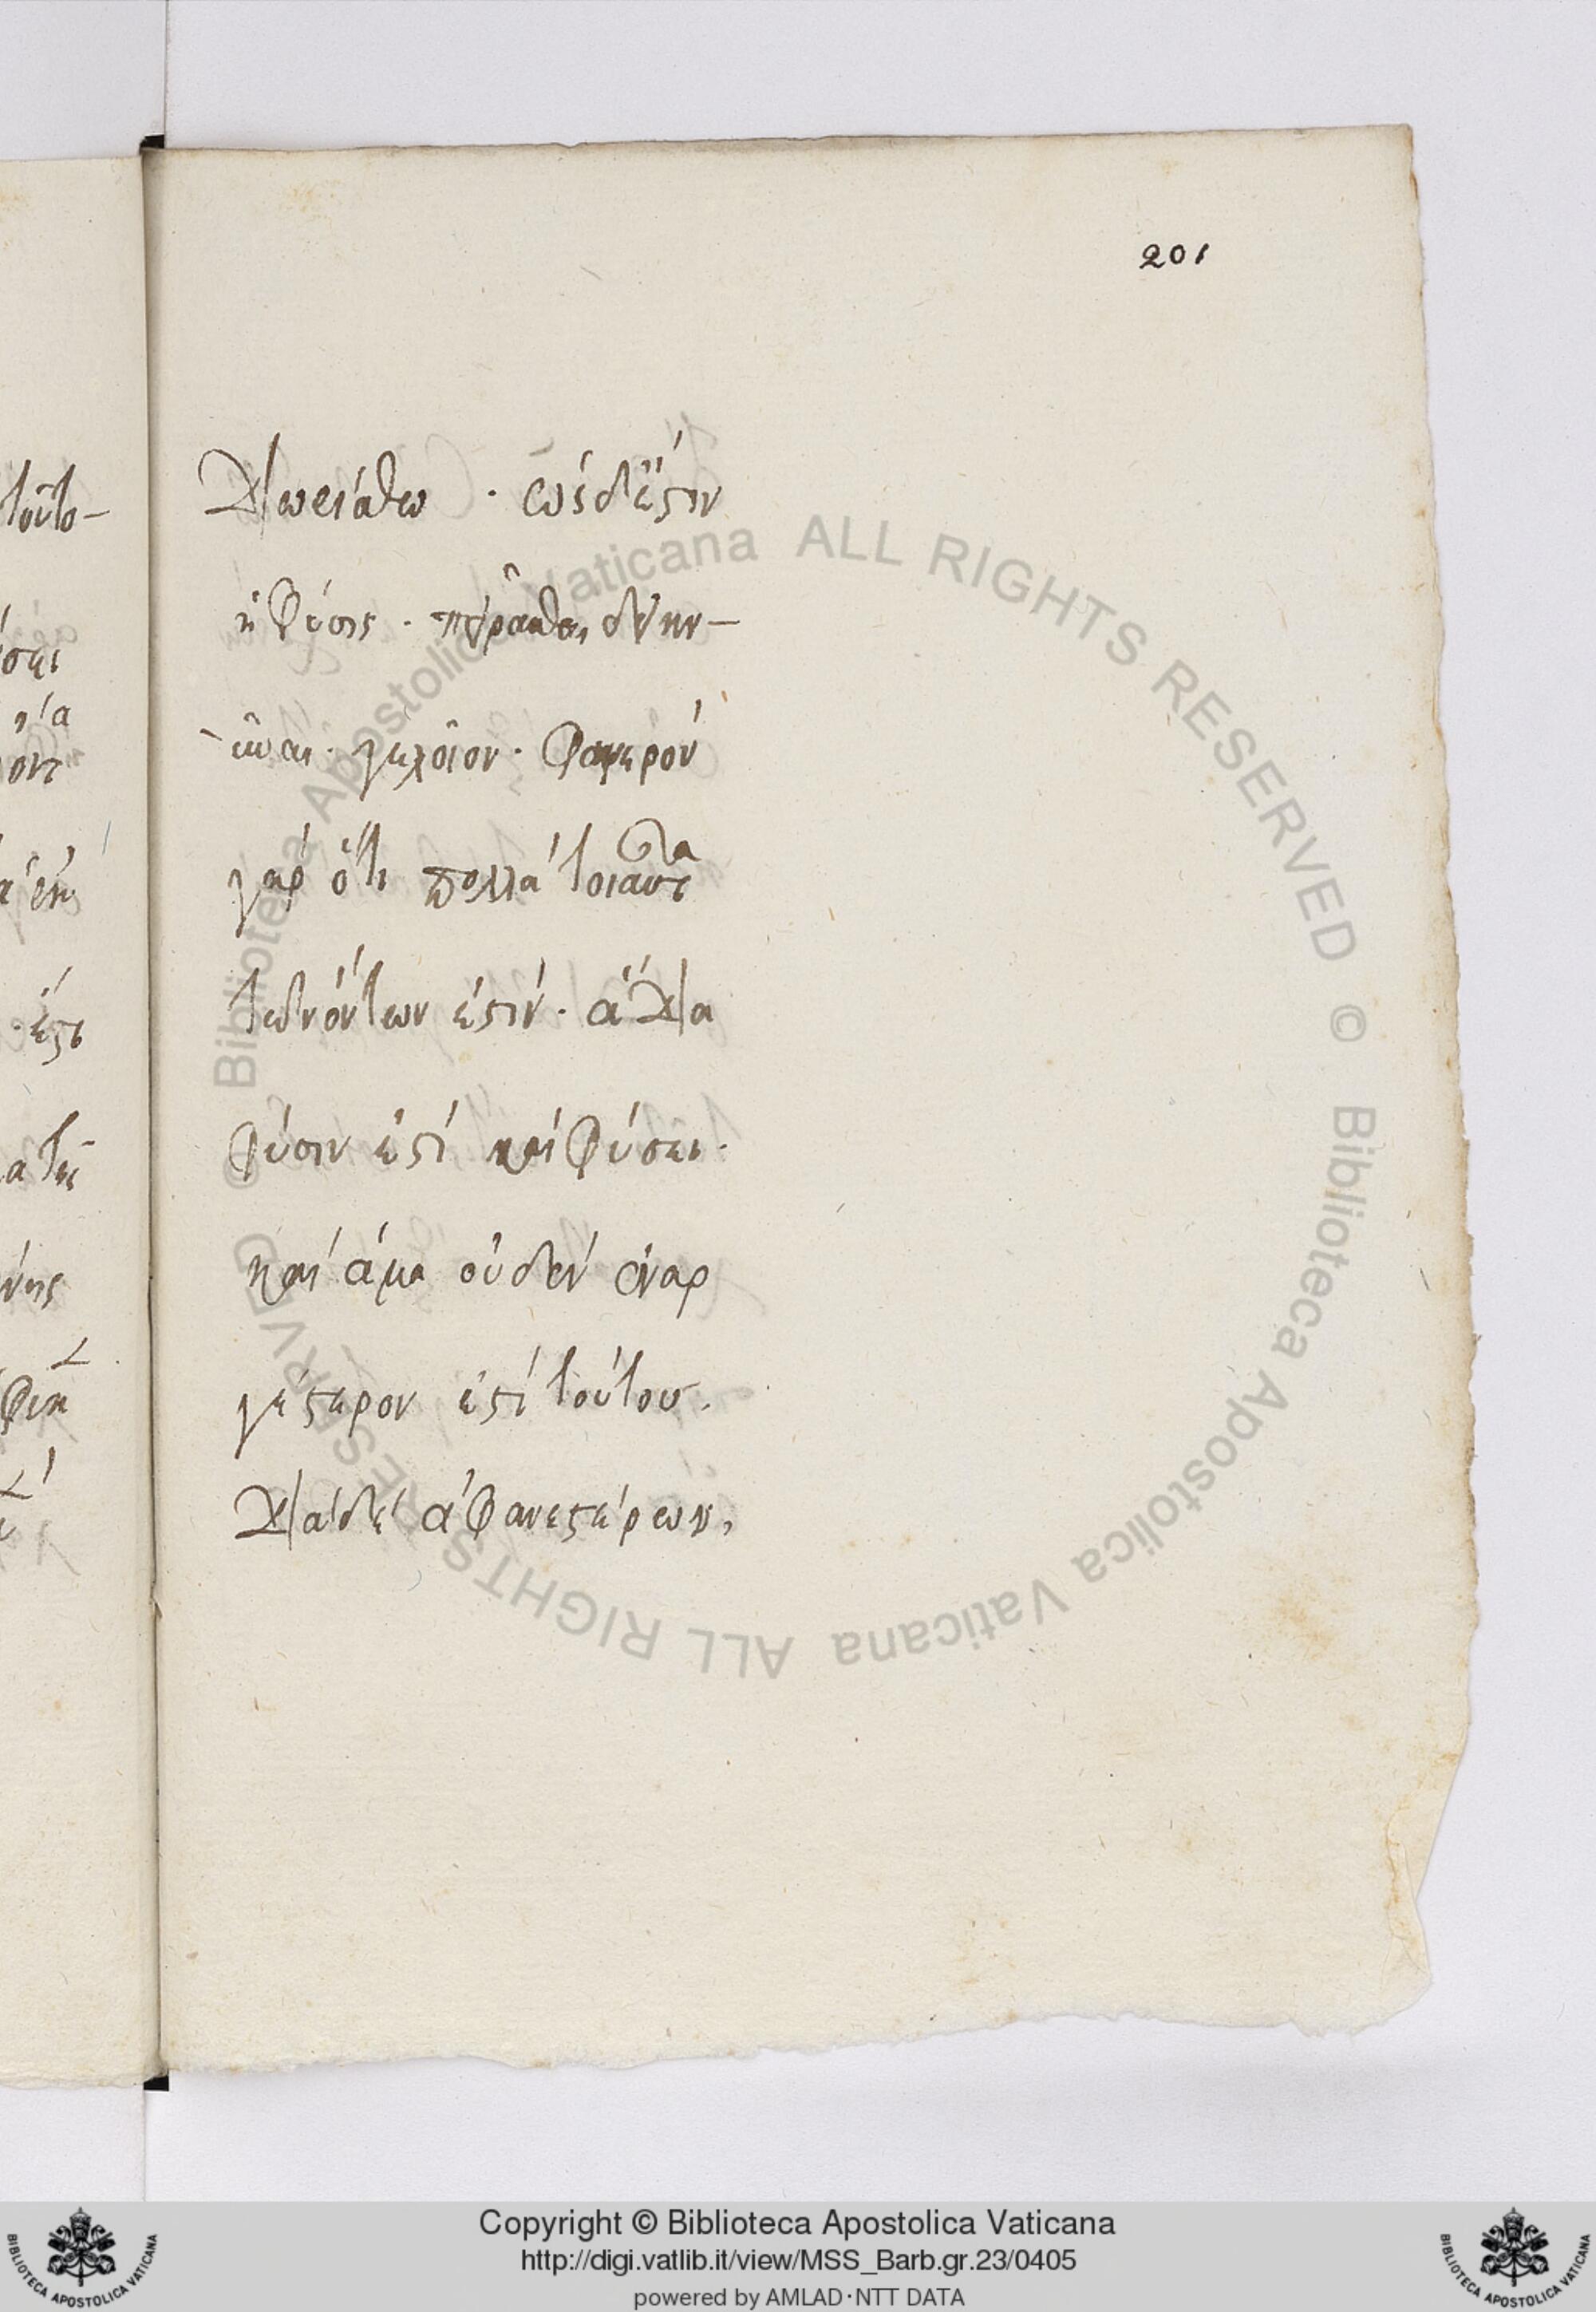 201
διωριάτω · ὡς δ' ἔστιν
ἡ φύσις · πειρᾶσθαι δεικν–
–ύναι · γελοῖον · φανερὸν
γὰρ ὅτι πολλὰ τοιαῦτα
τῶν ὄντων ἐστίν · ἃ διὰ
φύσιν ἐστὶ καὶ φύσει ·
καὶ ἅμα οὐδὲν ἐναρ
γέστερον ἐστὶ τούτου ·
διὰ δὲ ἀφανεστέρων,
τοῦτο–
© Biblioteca Apostolica Vaticana ALL RIGHTS RESERVED © Biblioteca Apostolica Vaticana ALL RIGHTS RESERVED
Copyright © Biblioteca Apostolica Vaticana
http://digi.vatlib.it/view/MSS_Barb.gr.23/0405
powered by AMLAD·NTT DATA
BIBLIOTECA APOSTOLICA VATICANA
BIBLIOTECA APOSTOLICA VATICANA